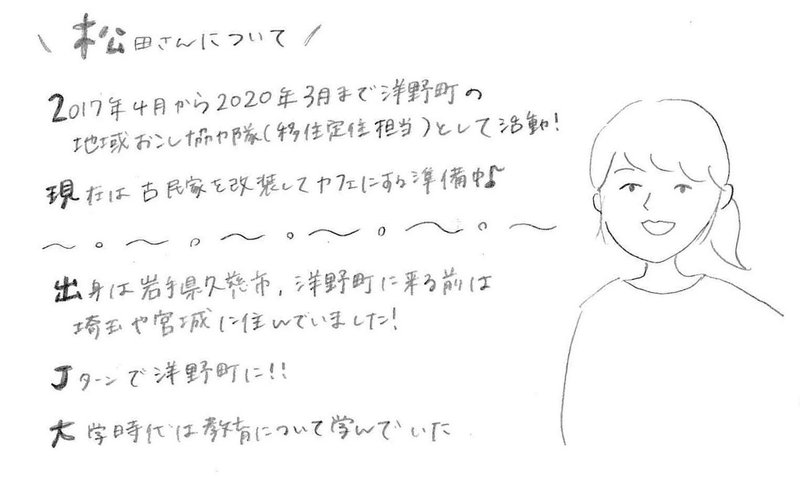 \ 松田さんについて /
2017年4月から2020年3月まで洋野町の
地域おこし協力隊(移住定住担当)として活動!
現在は古民家を改装してカフェにする準備中♪
〜。〜。〜。〜。〜。〜
出身は岩手県久慈市, 洋野町に来る前は
埼玉や宮城に住んでいました!
Jターンで洋野町に!!
大学時代は教育について学んでいた